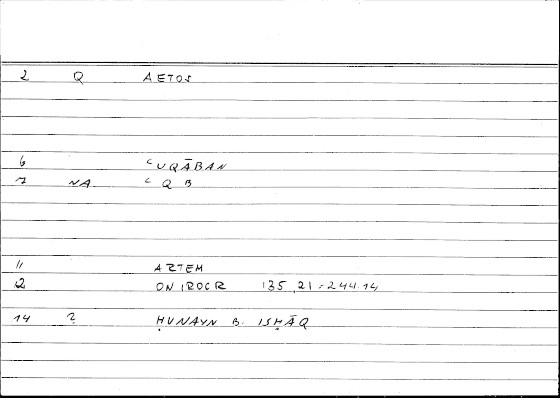 2 Q AETOS
6 ʿUQĀBAN
7 NA ʿQB
11 ARTEM
12 ONIROCR 135,21 = 244.14
14 ? ḤUNAYN B. ISḤĀQ